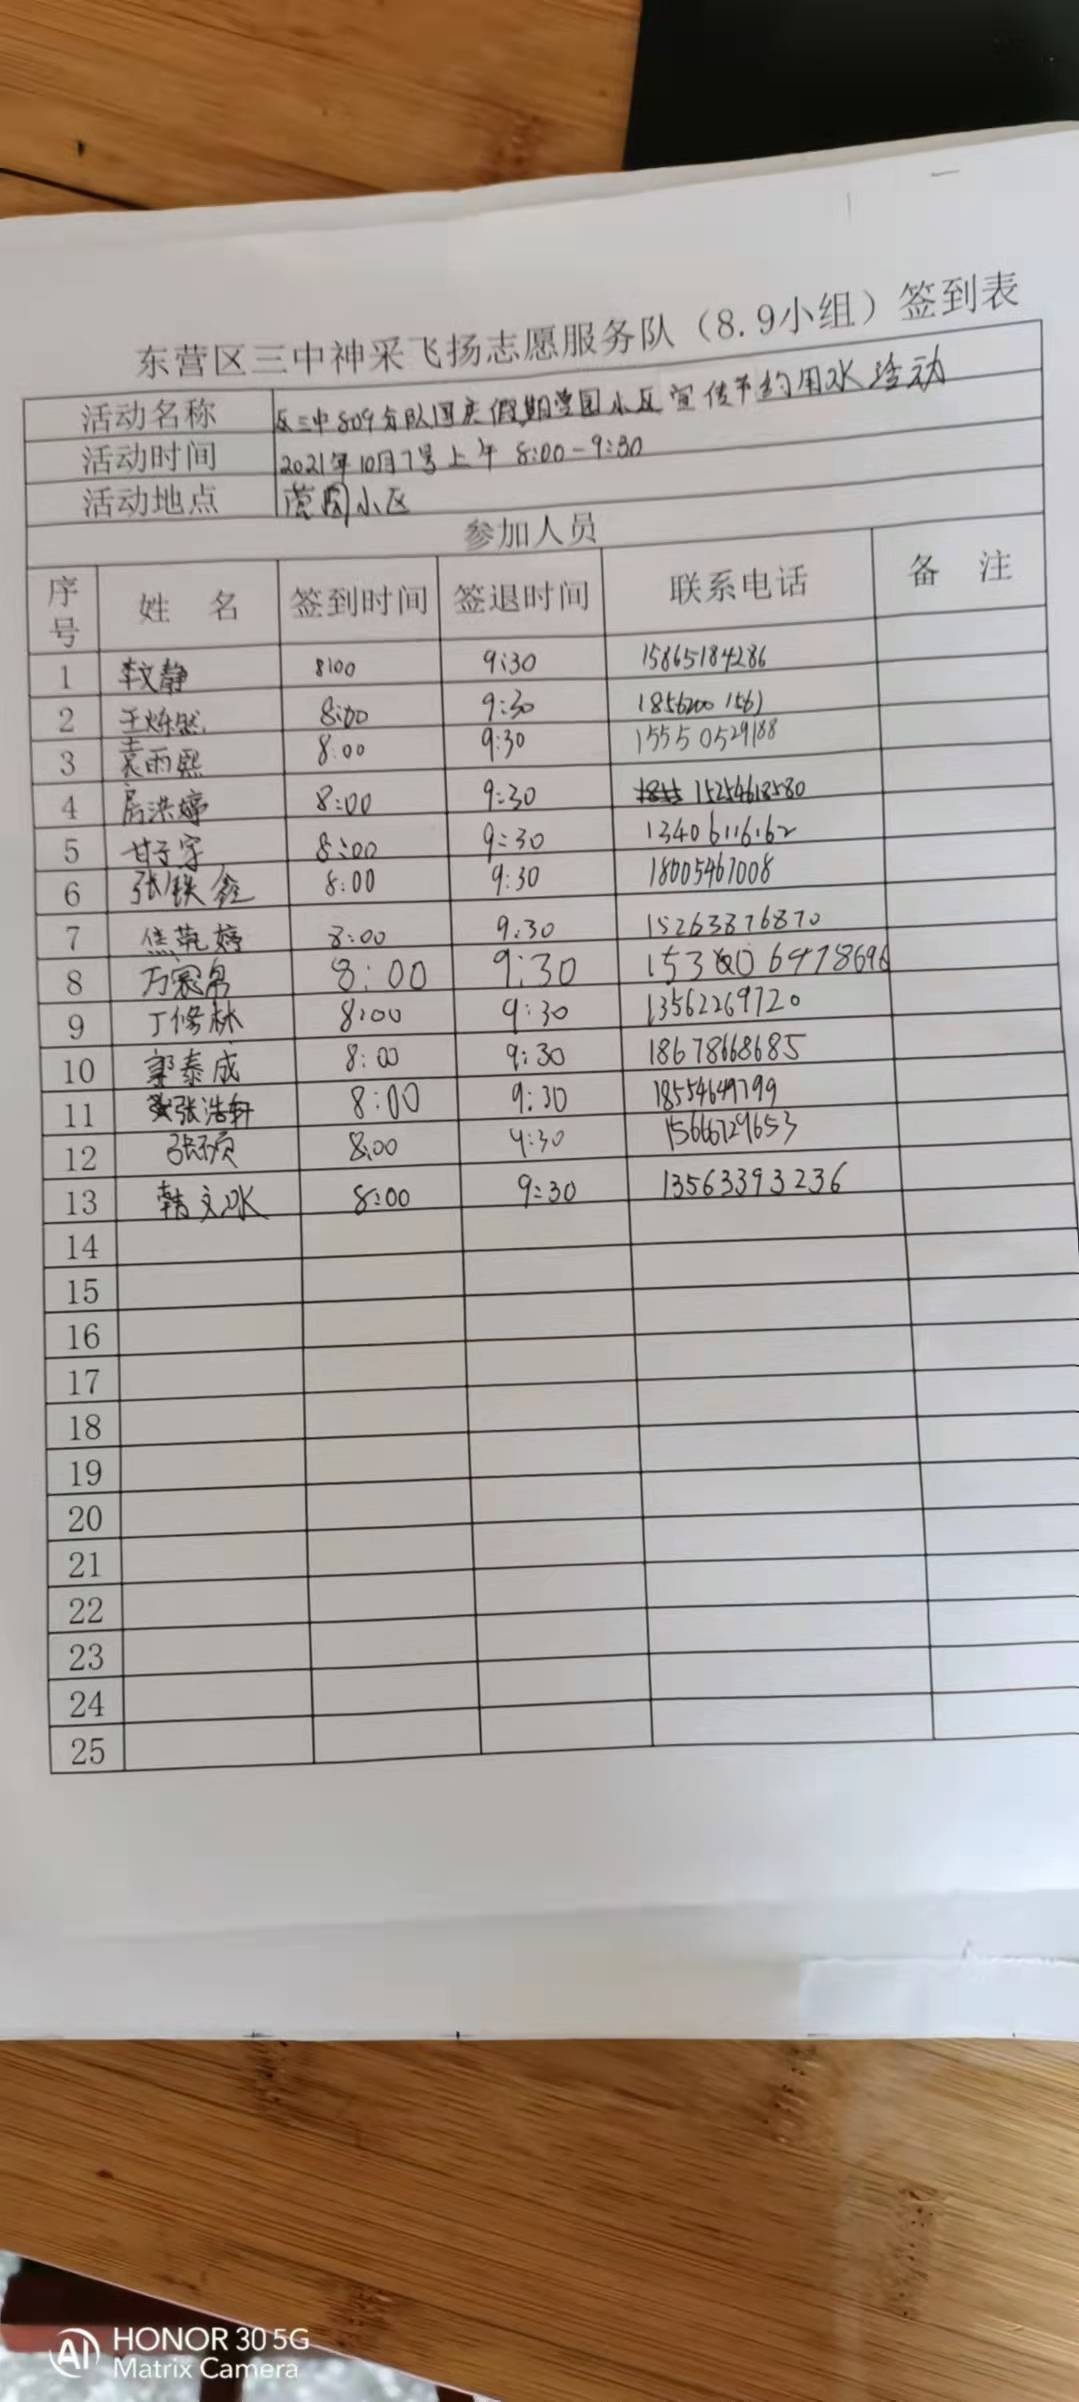 东营区三中神采飞扬志愿服务队（8.9小组）签到表
活动名称 区三中809分队国庆假期 园小区宣传节约用水活动
活动时间 2021年10月7号上午 8:00-9:30
活动地点 园小区
参加人员
序号 姓 名 签到时间 签退时间 联系电话 备 注
1 李文静 8:00 9:30 15865184286
2 王烁然 8:00 9:30 18562001561
3 袁雨熙 8:00 9:30 15550529188
4 房洪婷 8:00 9:30 15254618580
5 甘子宇 8:00 9:30 13406116162
6 张铁鑫 8:00 9:30 18005467008
7 焦乾婷 8:00 9:30 15263876870
8 万家帛 8:00 9:30
9 丁修林 8:00 9:30 13562269720
10 郭泰成 8:00 9:30 18678668685
11 张浩轩 8:00 9:30 18554649799
12 8:00 9:30 15666729653
13 韩文冰 8:00 9:30 13563393236
14
15
16
17
18
19
20
21
22
23
24
25
AI HONOR 30 5G
Matrix Camera